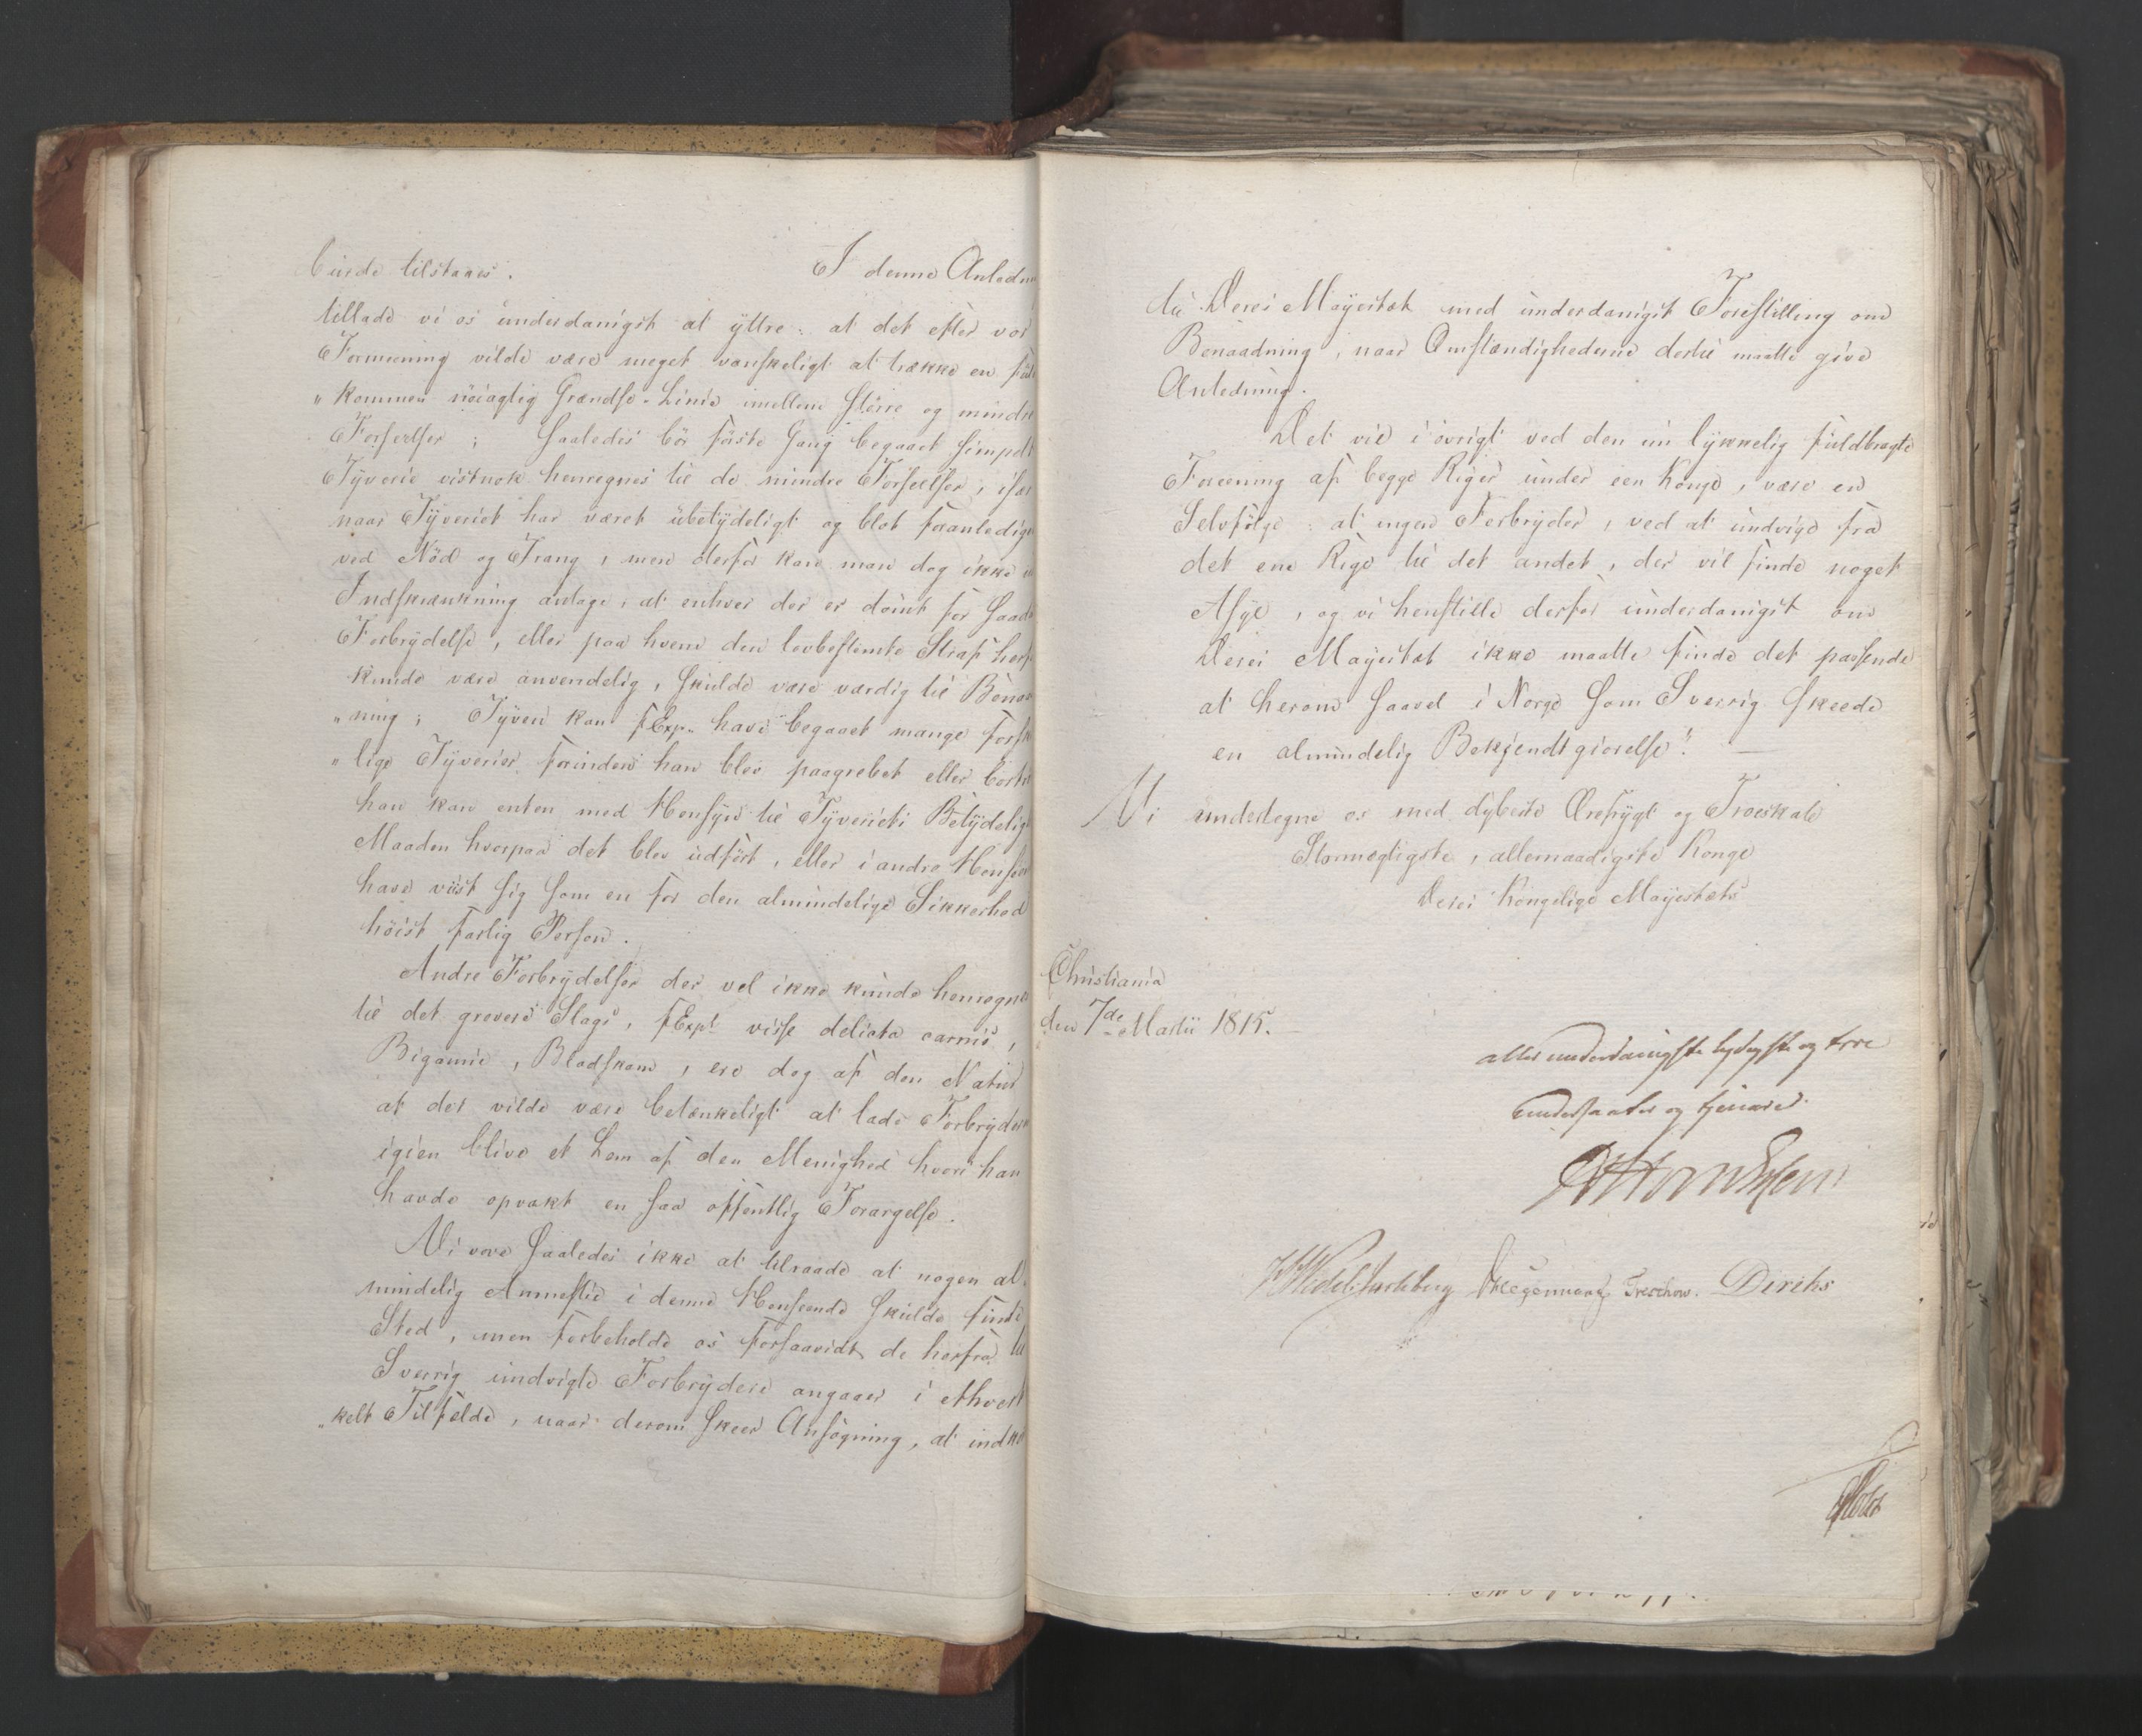 burde tilstaaes. I denne Anledn
tillade vi os underdanigst at yttre: at det efter vor
Formeening vilde være meget vanskeligt at trække en fuld
"kommen nöiagtig Grændse-Linie imellem större og mindre
Forseelser; Saaledes bör förste Gang begaaet simpelt
Tyverie vistnok henregnes til de mindre Forseelser, især
naar Tyveriet har været übetydeligt og blot foranledige
ved Nöd og Trang, men derfor kan man dog ikke
Indskrænkning antage, at enhver der er dömt for saad
Forbrydelse, eller paa hvem den lovbestemte Straf herf
kunde være anvendelig, skulde være værdig til Benaa
"ning; Tyven kan f Exp. have begaaet mange forsk
"lige Tyverier forinden han blev paagrebet eller
han kan enten med Hensyn til Tyveriets Betydelig
Maaden hvorpaa det blev udfört, eller i andre Hensee
have viist sig som en for den almindelige Sikkerhed
höist farlig Person.
Andre Forbrydelser der vel ikke kunde henregne
til det grovere Slags, f Expl visse delicta carnis,
Bigamie, Blodskam, ere dog af den Natur
at det vilde være betænkeligt at lade Forbryder
igien blive et Lem af den Menighed hvori han
havde opvakt en saa offentlig Forargelse.
Vi vove saaledes ikke at tilraade at nogen al
mindelig Amnestie i denne Henseende skulde finde
Sted, men forbeholde os forsaavidt de herfra til
Sverrig undvigte Forbrydere angaaer i ethvert
"kelt Tilfælde, naar derom skeer Ansögning, at indko
til Deres Mayestæt med underdanigst Forestilling om
Benaadning, naar Omstændighederne dertil maatte give
Anledning.
Det vil i övrigt ved den nu lykkelig fuldbragte
Foreening af begge Riger under een Konge, være en
Selvfölge: at ingen Forbryder, ved at undvige fra
det ene Rige til det andet, der vil finde noget
Asyl, og vi henstille derfor underdanigst om
Deres Mayestæt ikke maatte finde det passende
at herom saavel i Norge som Sverrig skeede
en almindelig Bekjendtgiörelse". —
Vi undertegne os med dybeste Ærefrygt og Troeskab
Stormægtigste, allernaadigste Konge
Deres Kongelige Mayestæts
Christiania
den 7de Martii 1815.
allerunderdanigste lydigste og troe
undersaatter og tjenere.
Wedel Jarlsberg Hegermann Treschow. Diriks
Holst